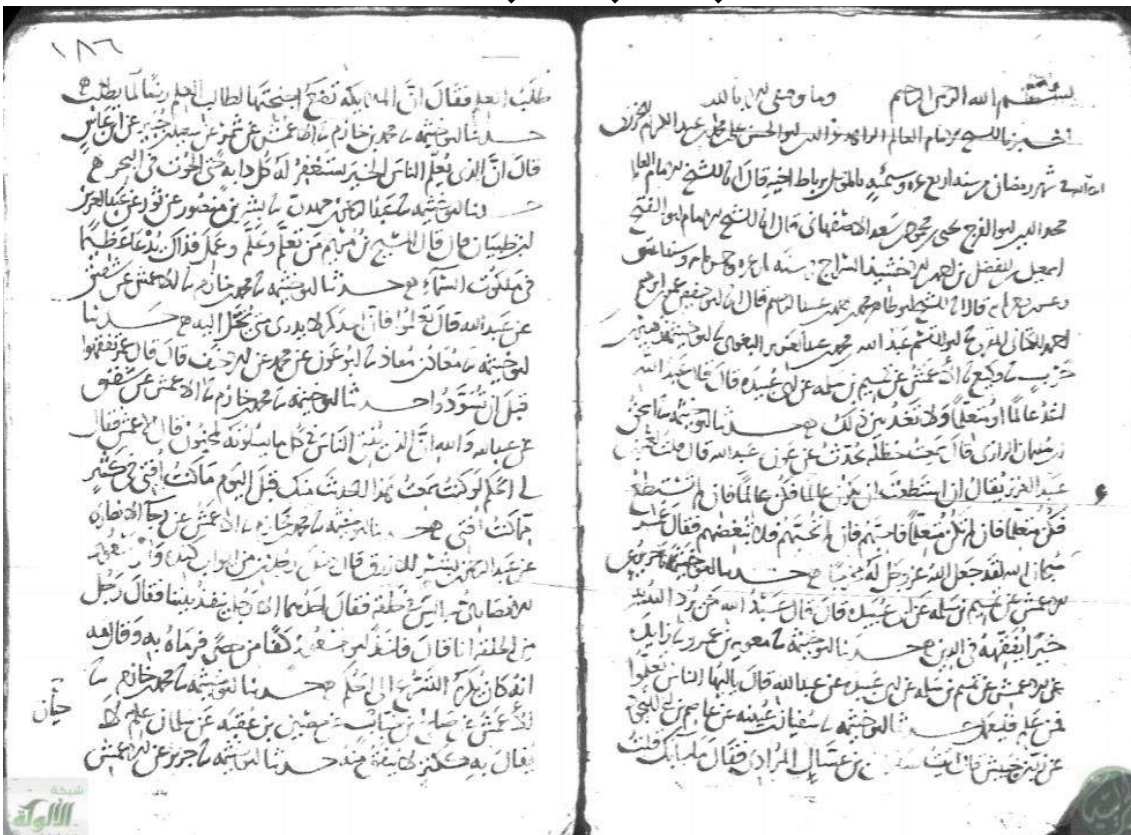 بسم الله الرحمن الرحيم وما توفيقي الا بالله
الشيخ الامام العالم ابو الحسن علي بن
شهر رمضان سنة اربع بالموصل برباط قال انا الشيخ الامام العالم
ابو الفرج يحيى بن محمود بن سعد الاصفهاني قال انا الشيخ الامام ابو الفتح
اسمعيل بن الفضل بن احمد بن الاخشيد السراج سنة
قال انا الشيخ ابو طاهر محمد بن احمد بن عبد الرحيم قال انا ابو حفص عمر بن ابرهيم
احمد الكتاني ابو القسم عبد الله بن محمد بن عبد العزيز البغوي ابو خيثمة زهير بن
حرب نا وكيع نا الاعمش عن تميم بن سلمة عن ابي عبيدة قال قال عبد الله
اغد عالما او متعلما ولا تغد بين ذلك حدثنا ابو خيثمة نا اسحق
بن سليمن الرازي قال سمعت حنظلة يحدث عن عون بن عبد الله قال قلت لعمر بن
عبد العزيز يقال ان استطعت ان تكون عالما فكن عالما فان لم تستطع
فكن متعلما فان لم تكن متعلما فاحبهم فان لم تحبهم فلا تبغضهم فقال عمر
سبحان الله لقد جعل الله عز وجل له مخرجا حدثنا ابو خيثمة نا جرير عن
الاعمش عن تميم بن سلمة عن ابي عبيدة قال قال عبد الله من يرد الله به
خيرا يفقهه في الدين حدثنا ابو خيثمة نا معوية بن عمرو نا زايدة
عن الاعمش عن تميم بن سلمة عن ابي عبيدة عن عبد الله قال يا ايها الناس تعلموا
فمن علم فليعمل حدثنا ابو خيثمة نا سفيان بن عيينة عن عاصم بن ابي النجود
عن زر بن حبيش قال اتيت صفوان بن عسال المرادي فقال ما جا بك قلت
١٨٦
طلب العلم فقال ان الملايكة تضع اجنحتها لطالب العلم رضا لما يطلب
حدثنا ابو خيثمة نا محمد بن خازم نا الاعمش عن شمر عن سعيد بن جبير عن ابن عباس
قال ان الذي يعلم الناس الخير يستغفر له كل دابة حتى الحوت في البحر
ثنا ابو خيثمة نا عبد الرحمن بن مهدي نا بشر بن منصور عن ثور عن عبد العزيز
بن ظبيان قال قال المسيح بن مريم من تعلم وعلم وعمل فذاك يدعا عظيما
في ملكوت السماء حدثنا ابو خيثمة نا محمد بن خازم نا الاعمش عن شقيق
عن عبد الله قال تعلموا فان احدكم لا يدري متى يختل اليه حدثنا
ابو خيثمة نا معاذ بن معاذ نا ابن عون عن محمد عن الاحنف قال قال عمر تفقهوا
قبل ان تسودوا حدثنا ابو خيثمة نا محمد بن خازم نا الاعمش عن شقيق
عن عبد الله والله ان الذي يفتي الناس في كل ما يسلونه لمجنون قال الاعمش فقال
لي الحكم لو كنت سمعت بهذا الحديث منك قبل اليوم ما كنت افتي في كثير
مما كنت افتي حدثنا ابو خيثمة نا محمد بن خازم نا الاعمش عن رجاء الانصاري
عن عبد الرحمن بن بشر الازرق قال دخل رجلان من ابواب كندة وابو مسعود
الانصاري جالس في حلقة فقال احدهما الا رجل ينفذ بيننا فقال رجل
من الحلقة انا قال فاخذ ابو مسعود كفا من حصى فرماه به وقال مه
انه كان يكره التسرع الى الحكم حدثنا ابو خيثمة نا محمد بن خازم نا
الاعمش عن صالح بن عن حصين بن عقبة عن سلمان علم لا
حيان
يقال به ككنز لا ينفق منه حدثنا ابو خيثمة نا جرير عن الاعمش
شبكة
الألوكة